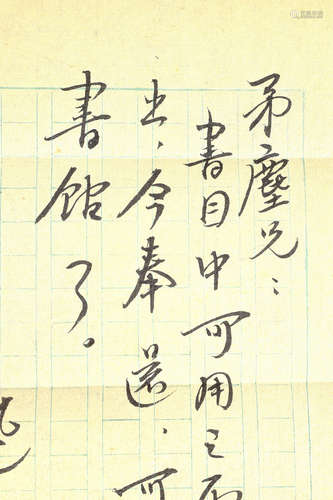 矛塵兄：
書目中可用之
出，今奉還，可
書館了。